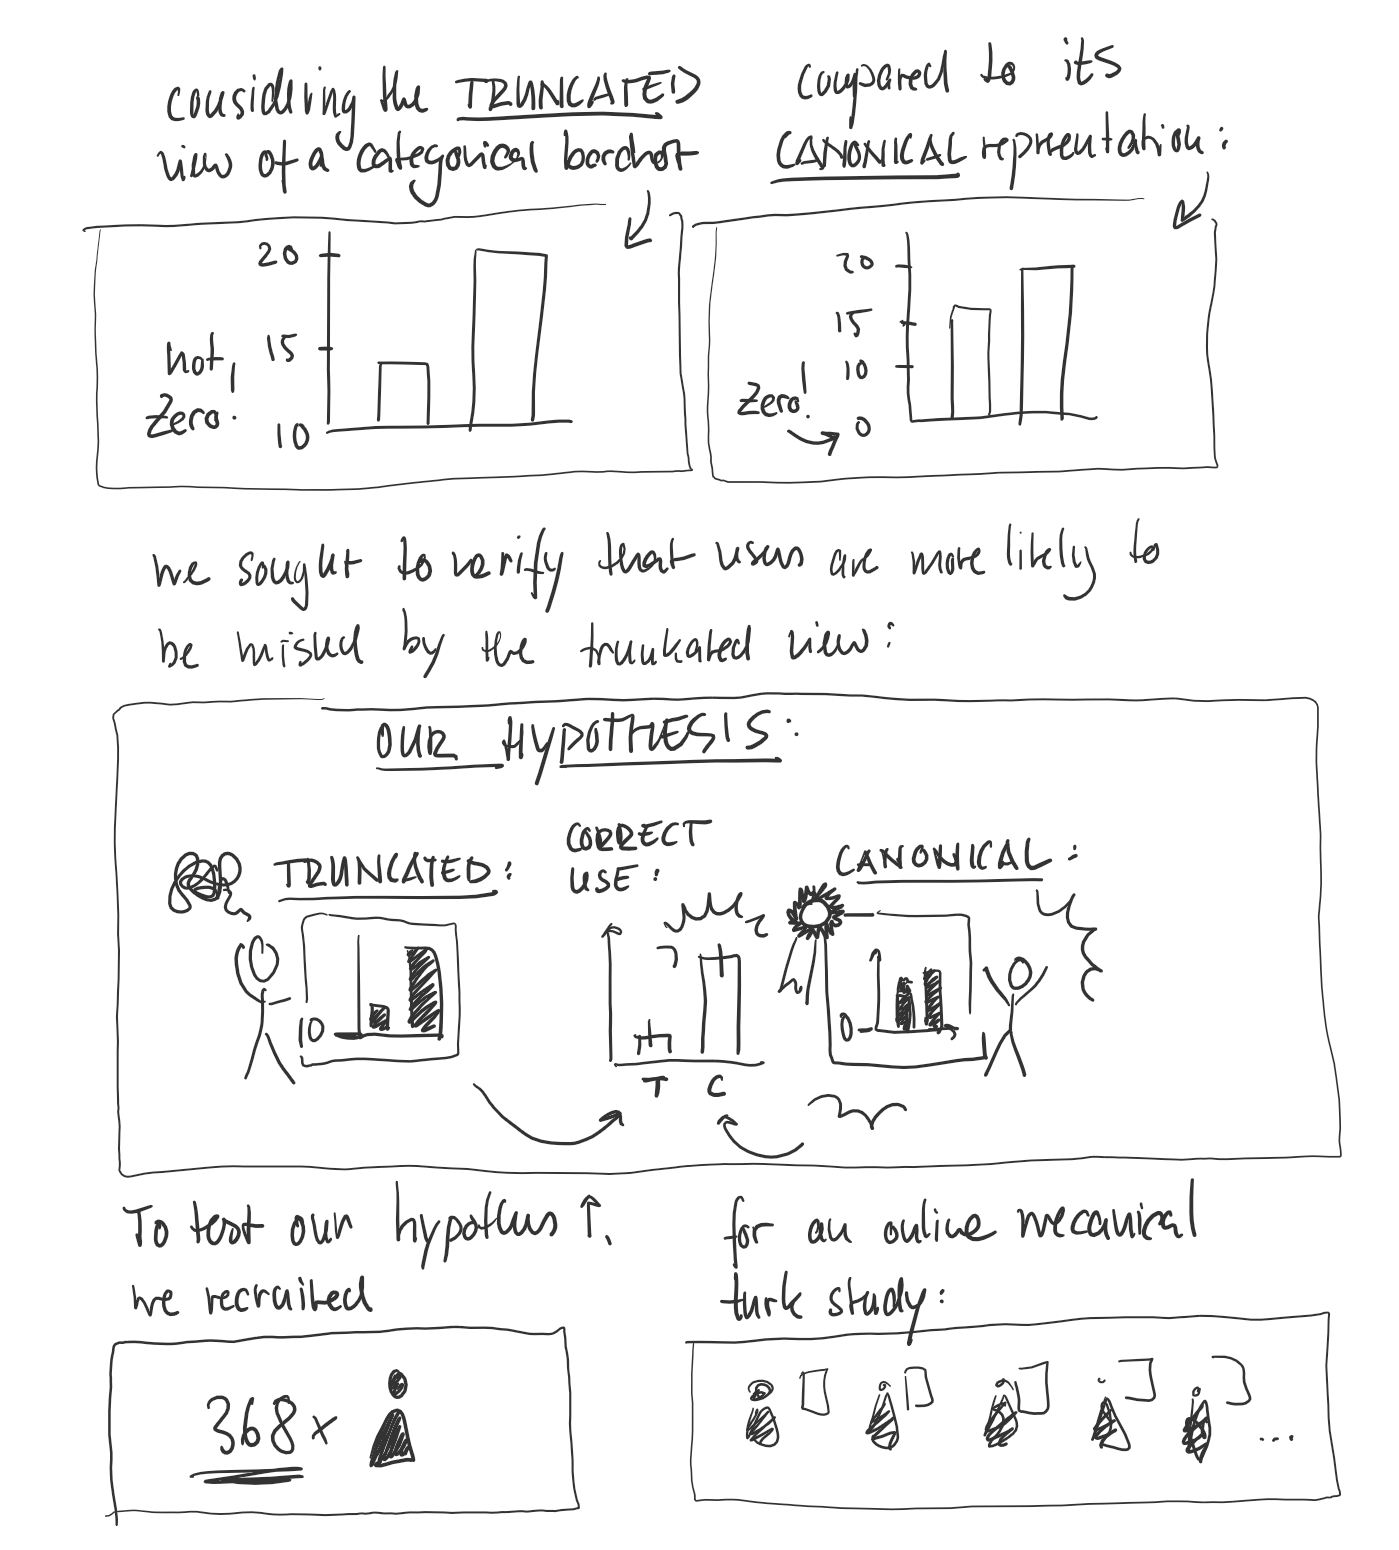 considering the TRUNCATED
view of a categorical barchart
compared to its
CANONICAL representation:
20
15
10
not
zero!
20
15
10
0
zero!
we sought to verify that users are more likely to
be misled by the trunkated view:
OUR HYPOTHESIS:
TRUNCATED:
10
CORRECT
USE:
T C
CANONICAL:
0
To test our hypothesis ↑,
we recruited
for an online mecanical
turk study:
368 x
...